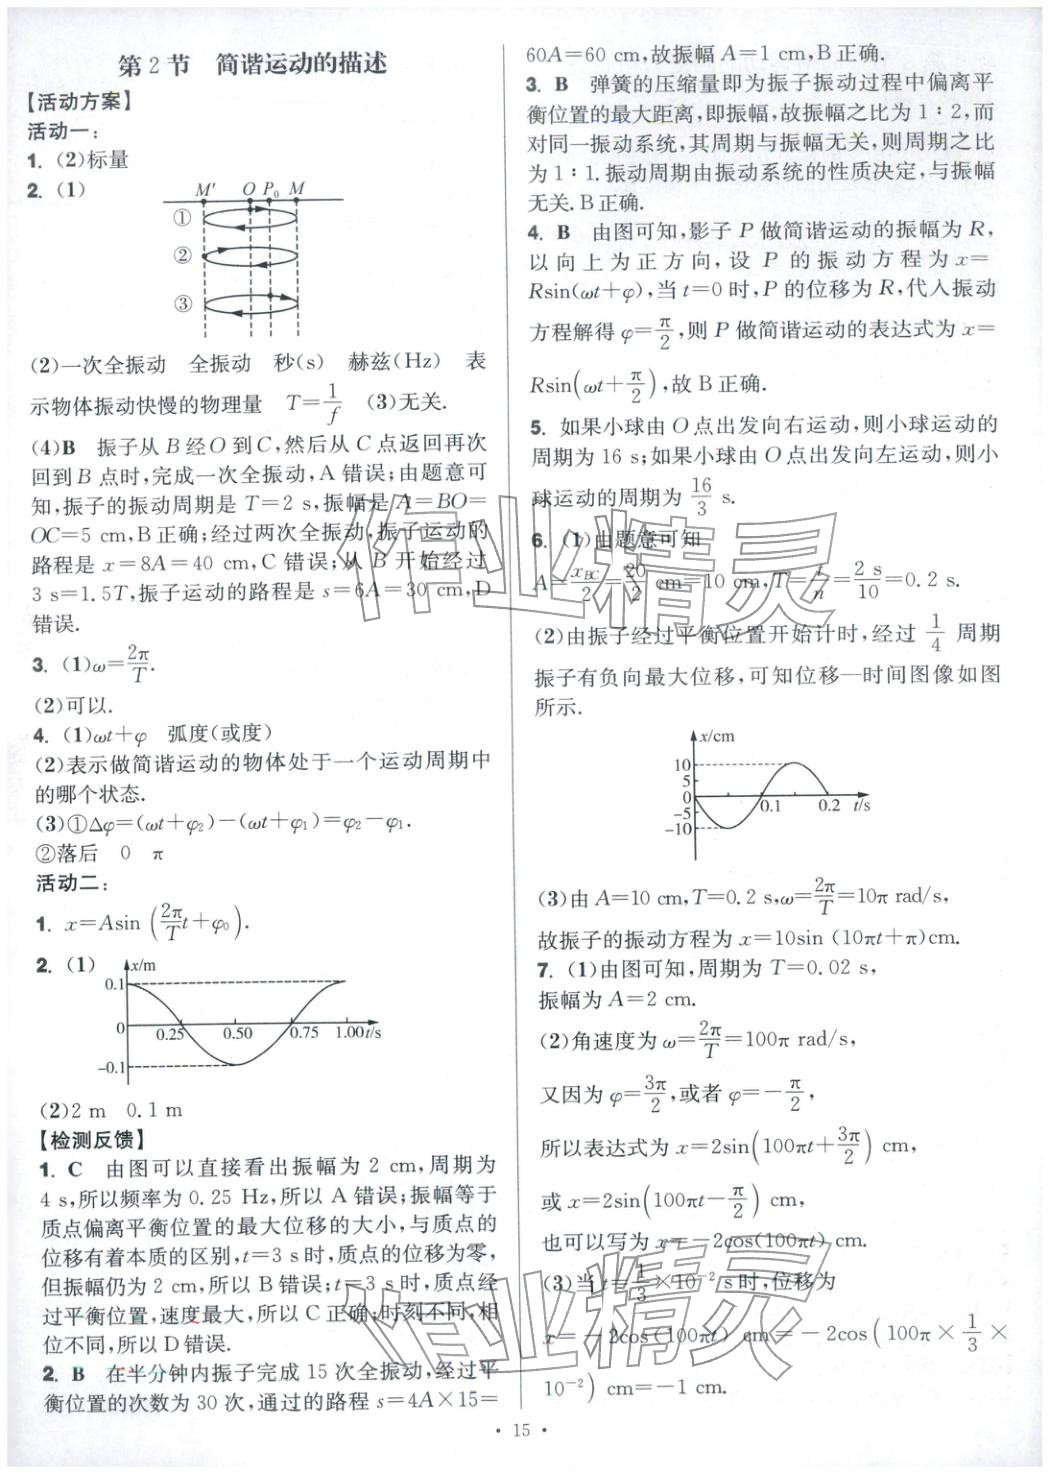 第2节 简谐运动的描述
【活动方案】
活动一:
1. (2)标量
2. (1)
M′ O P₀ M
①
②
③
(2)一次全振动 全振动 秒(s) 赫兹(Hz) 表
示物体振动快慢的物理量 T=1/f (3)无关.
(4)B 振子从B经O到C,然后从C点返回再次
回到B点时,完成一次全振动,A错误;由题意可
知,振子的振动周期是T=2 s,振幅是A=BO=
OC=5 cm,B正确;经过两次全振动,振子运动的
路程是x=8A=40 cm,C错误;从B开始经过
3 s=1.5T,振子运动的路程是s=6A=30 cm,D
错误.
3. (1)ω=2π/T.
(2)可以.
4. (1)ωt+φ 弧度(或度)
(2)表示做简谐运动的物体处于一个运动周期中
的哪个状态.
(3)①Δφ=(ωt+φ₂)-(ωt+φ₁)=φ₂-φ₁.
②落后 0 π
活动二:
1. x=Asin(2π/T t+φ₀).
2. (1)
x/m
0.1
0
-0.1
0.25 0.50 0.75 1.00 t/s
(2)2 m 0.1 m
【检测反馈】
1. C 由图可以直接看出振幅为2 cm,周期为
4 s,所以频率为0.25 Hz,所以A错误;振幅等于
质点偏离平衡位置的最大位移的大小,与质点的
位移有着本质的区别,t=3 s时,质点的位移为零,
但振幅仍为2 cm,所以B错误;t=3 s时,质点经
过平衡位置,速度最大,所以C正确;时刻不同,相
位不同,所以D错误.
2. B 在半分钟内振子完成15次全振动,经过平
衡位置的次数为30次,通过的路程s=4A×15=
60A=60 cm,故振幅A=1 cm,B正确.
3. B 弹簧的压缩量即为振子振动过程中偏离平
衡位置的最大距离,即振幅,故振幅之比为1∶2,而
对同一振动系统,其周期与振幅无关,则周期之比
为1∶1.振动周期由振动系统的性质决定,与振幅
无关.B正确.
4. B 由图可知,影子P做简谐运动的振幅为R,
以向上为正方向,设P的振动方程为x=
Rsin(ωt+φ),当t=0时,P的位移为R,代入振动
方程解得φ=π/2,则P做简谐运动的表达式为x=
Rsin(ωt+π/2),故B正确.
5. 如果小球由O点出发向右运动,则小球运动的
周期为16 s;如果小球由O点出发向左运动,则小
球运动的周期为16/3 s.
6. (1)由题意可知
A=x_BC/2=20/2 cm=10 cm,T=t/n=2 s/10=0.2 s.
(2)由振子经过平衡位置开始计时,经过1/4周期
振子有负向最大位移,可知位移—时间图像如图
所示.
x/cm
10
5
0
-5
-10
0.1 0.2 t/s
(3)由A=10 cm,T=0.2 s,ω=2π/T=10π rad/s,
故振子的振动方程为x=10sin (10πt+π)cm.
7. (1)由图可知,周期为T=0.02 s,
振幅为A=2 cm.
(2)角速度为ω=2π/T=100π rad/s,
又因为φ=3π/2,或者φ=-π/2,
所以表达式为x=2sin(100πt+3π/2) cm,
或x=2sin(100πt-π/2) cm,
也可以写为x=-2cos(100πt) cm.
(3)当t=1/3×10⁻² s时,位移为
x=-2cos(100πt) cm=-2cos(100π×1/3×
10⁻²) cm=-1 cm.
· 15 ·
作业精灵
作业精灵